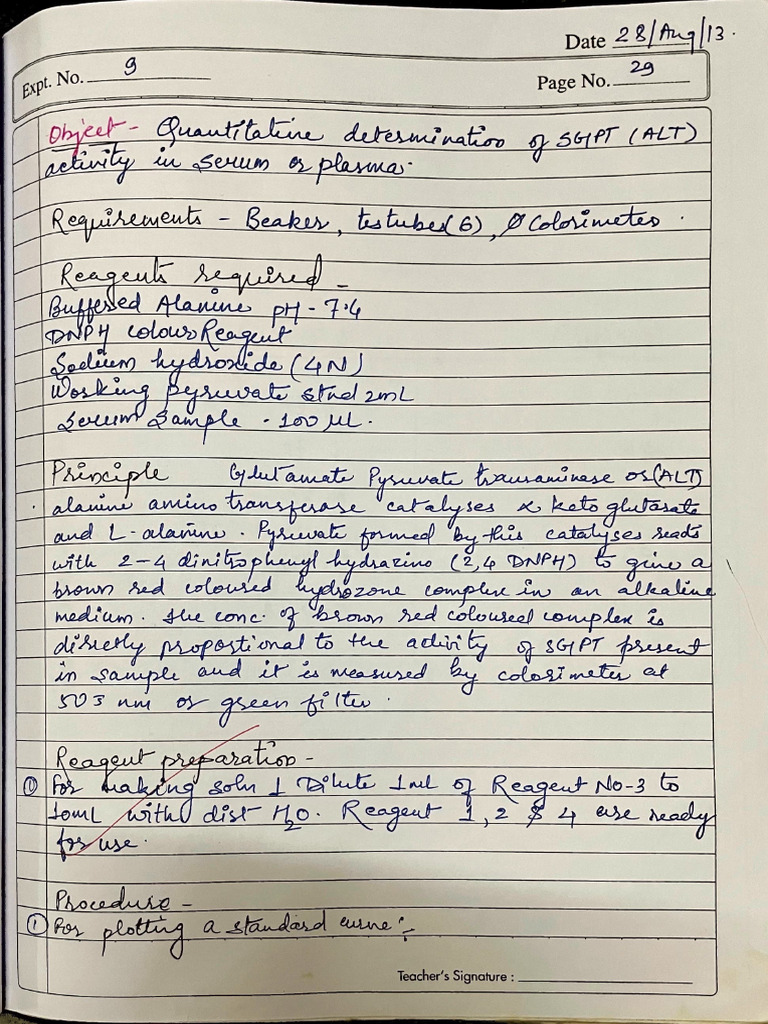 Date 28/Aug/13.
Expt. No. 9
Page No. 29
Object - Quantitative determination of SGPT (ALT)
activity in serum or plasma.
Requirements - Beaker, testubes (6), Colorimeter.
Reagents required -
Buffered Alanine pH - 7.4
DNPH colour Reagent
Sodium hydroxide (4N)
Working pyruvate stnd 2mL
Serum Sample - 100 µL.
Principle Glutamate Pyruvate transaminase or (ALT)
alanine amino transferase catalyses α keto glutarate
and L-alanine. Pyruvate formed by this catalyses reacts
with 2-4 dinitrophenyl hydrazine (2,4 DNPH) to give a
brown red coloured hydrozone complex in an alkaline
medium. The conc. of brown red coloured complex is
directly proportional to the activity of SGPT present
in sample and it is measured by colorimeter at
503 nm or green filter.
Reagent preparation -
① For making soln 1 Dilute 1mL of Reagent No-3 to
10mL with dist H₂O. Reagent 1, 2 & 4 are ready
for use.
Procedure -
① For plotting a standard curve :-
Teacher's Signature :